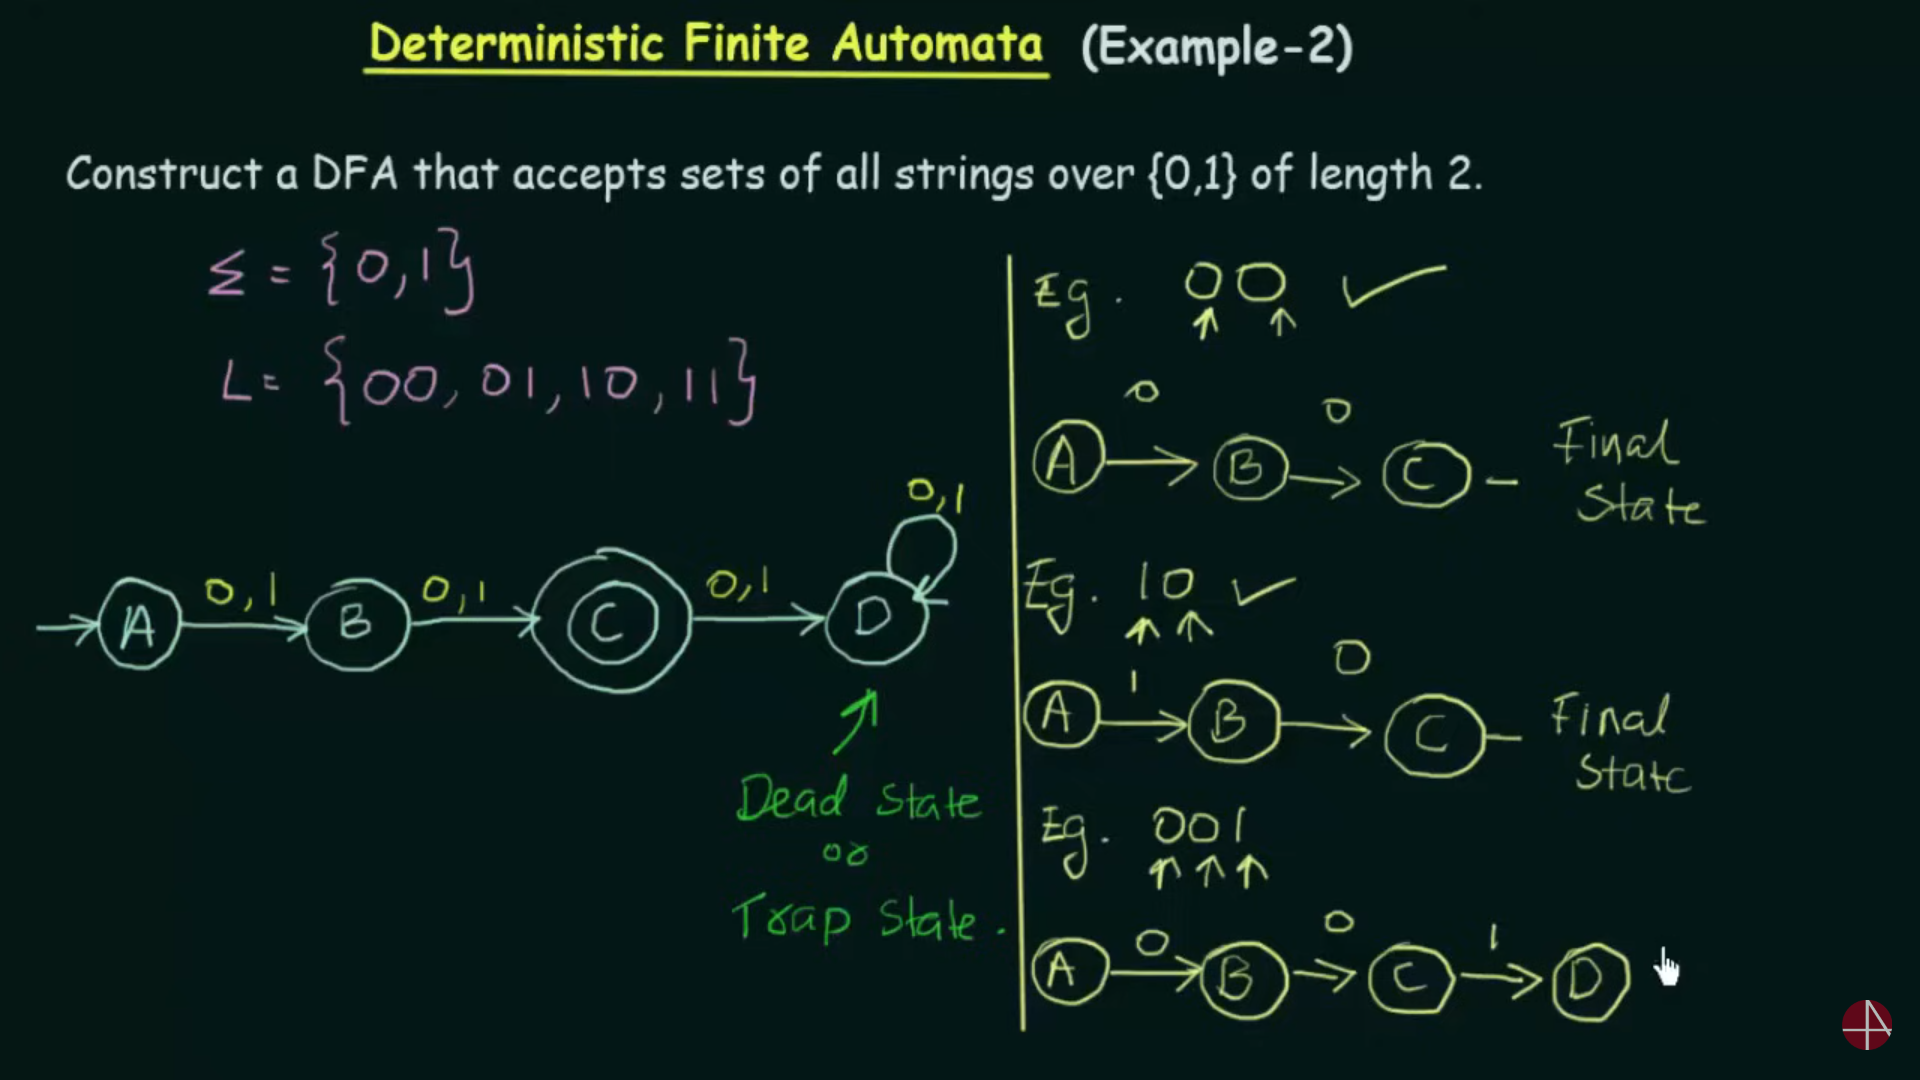 Deterministic Finite Automata (Example-2)
Construct a DFA that accepts sets of all strings over {0,1} of length 2.
Σ = {0,1}
L = {00, 01, 10, 11}
0,1
0,1 0,1 0,1
A B C D
Dead State
or
Trap State.
Eg. 00 ✓
0 0
A B C – Final
State
Eg. 10 ✓
1 0
A B C – Final
State
Eg. 001
0 0 1
A B C D